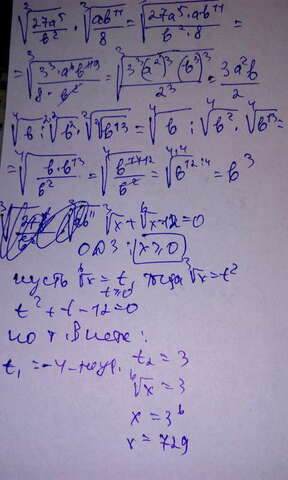 ∛(27a⁵/b²) · ∛(ab¹¹/8) = ∛(27a⁵·ab¹¹/b²·8) =
= ∛(3³·a⁶b⁹/8) = ∛(3³(a²)³(b³)³/2³) = 3a²b/2
⁴√b : ⁴√b² · ⁴√b¹³ = ⁴√b : ⁴√b² · ⁴√b¹³ =
= ⁴√(b·b¹³/b²) = ⁴√(b¹⁴/b²) = ⁴√b¹² = b³
∛x + ⁶√x - 12 = 0
ОДЗ: x ≥ 0
пусть ⁶√x = t, тогда ∛x = t²
t ≥ 0
t² + t - 12 = 0
по т. Виета:
t₁ = -4 - не уд. t₂ = 3
⁶√x = 3
x = 3⁶
x = 729